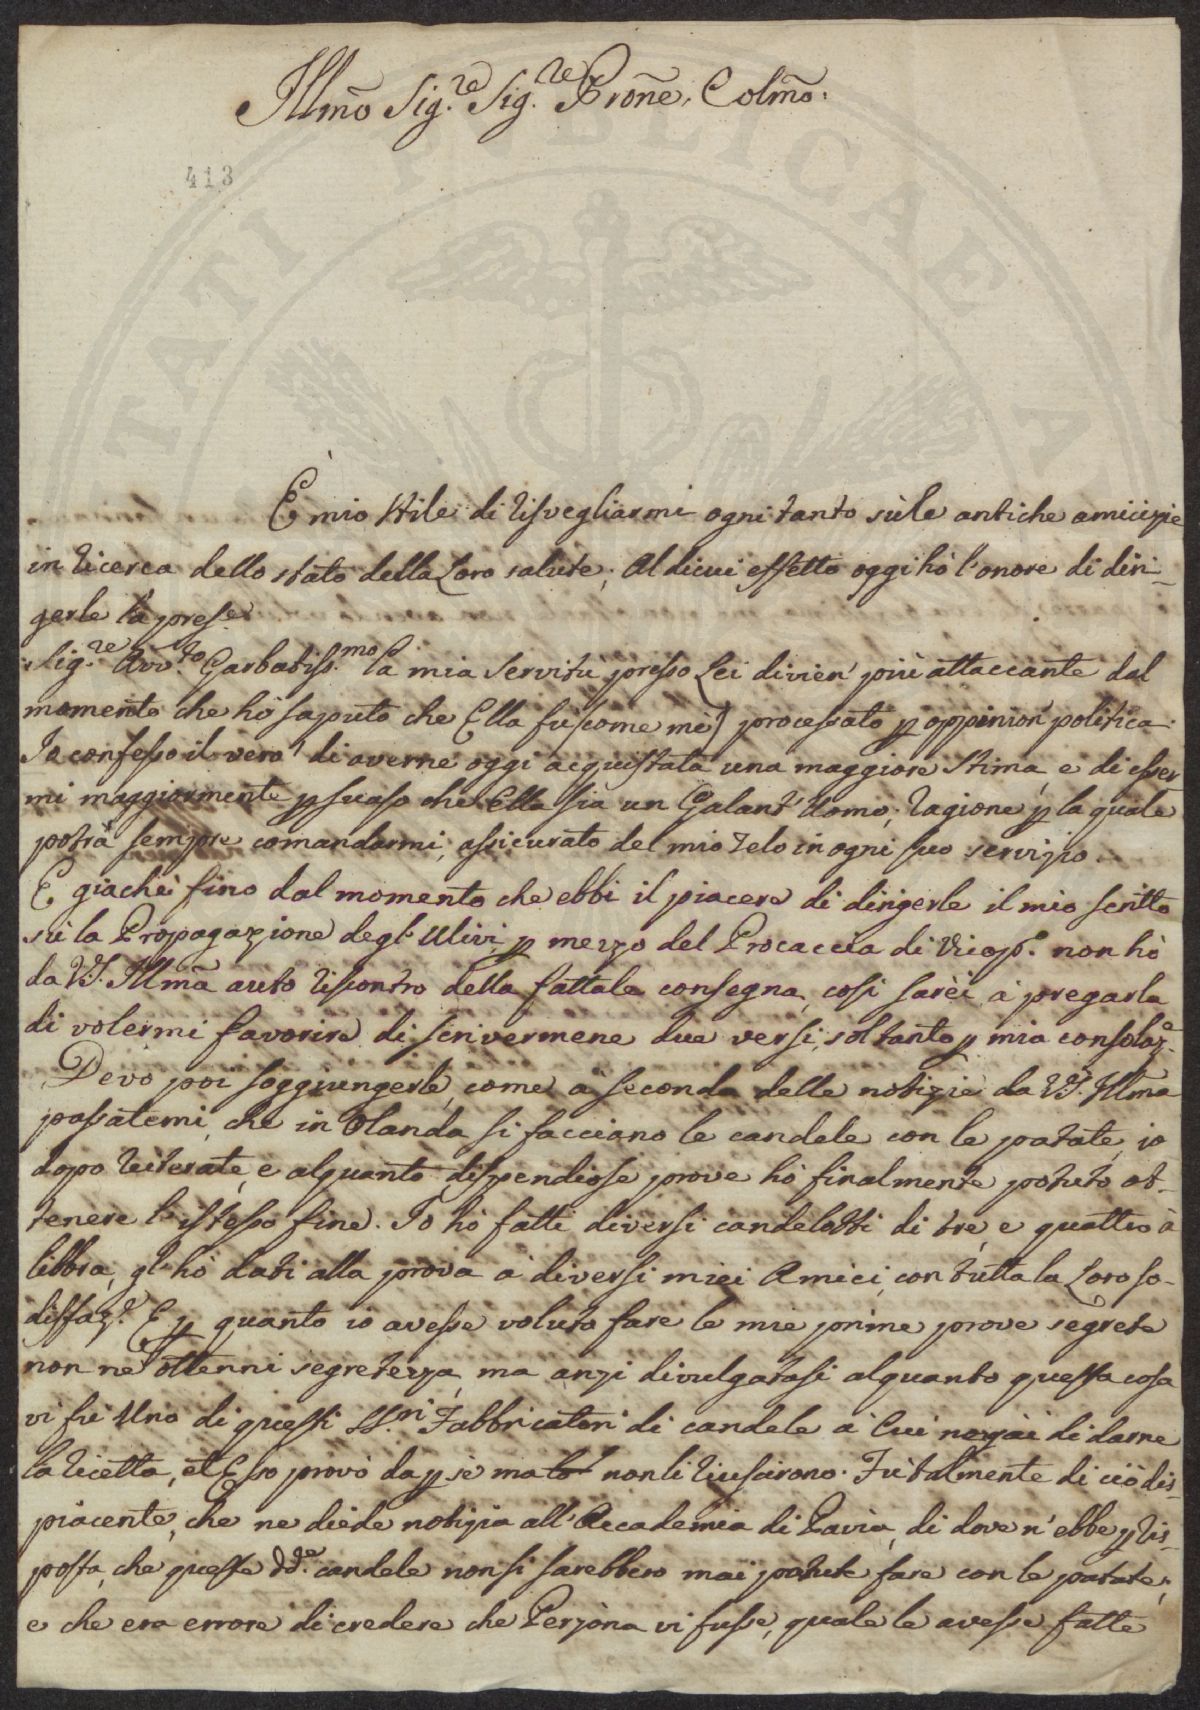 Illm̃o Sig.re Sig.re Prõne, Colm̃o:
413
È mio stile di risvegliarmi ogni tanto sù le antiche amicizie
in ricerca dello stato della Loro salute; Al di cui effetto oggi hò l'onore di diri-
gerle la pres.e
Sig.re Avv.to Garbatiss.mo la mia servitù presso Lei divien' più attaccante dal
momento che hò saputo che Ella fù (come mè) processato p oppinion' politica.
Io confesso il vero' di averne oggi acquistata una maggiore stima, e di esser
mi maggiormente psuaso che Ella sia un Galant' Uomo; ragione, p la quale
potrà sempre comandarmi, assicurato del mio zelo in ogni suo servizio.
E giachè fino dal momento che ebbi il piacere di dirigerle il mio scritto
sù la Propagazione degl' Ulivi, p mezzo del Procaccia di Vicop.o non hò
da VS. Illm̃a auto riscontro della fattale consegna, così sarèi à pregarla
di volermi favorire di scrivermene due versi, soltanto p mia consolaz.e
Devo poi soggiungerle, come à seconda delle notizie da VS. Illm̃a
passatemi, che in Olanda si facciano le candele con le patate, io
dopo reiterate, e alquanto dispendiose prove hò finalmente potuto ot-
tenere l'istesso fine. Io hò fatti diversi candelotti di tre, e quattro à
libbra, gl' hò dati alla prova à diversi miei Amici, con tutta la Loro so-
disfaz.e E p quanto io avesse voluto fare le mie prime prove segrete
non ne ottenni segretezza, ma anzi divulgatasi alquanto questa cosa
vi fù Uno di questi SS.ri Fabbricatori di candele à Cui negai di darne
la ricetta, et Esso provò da p sè ma non li riuscirono. Fù talmente di ciò dis-
piacente, che ne diede notizia all' Accademia di Pavia, di dove n' ebbe p ris-
posta, che queste dd.e candele non si sarebbero mai potute fare con le patate;
e che era errore di credere che Perzona vi fusse, quale le avesse fatte